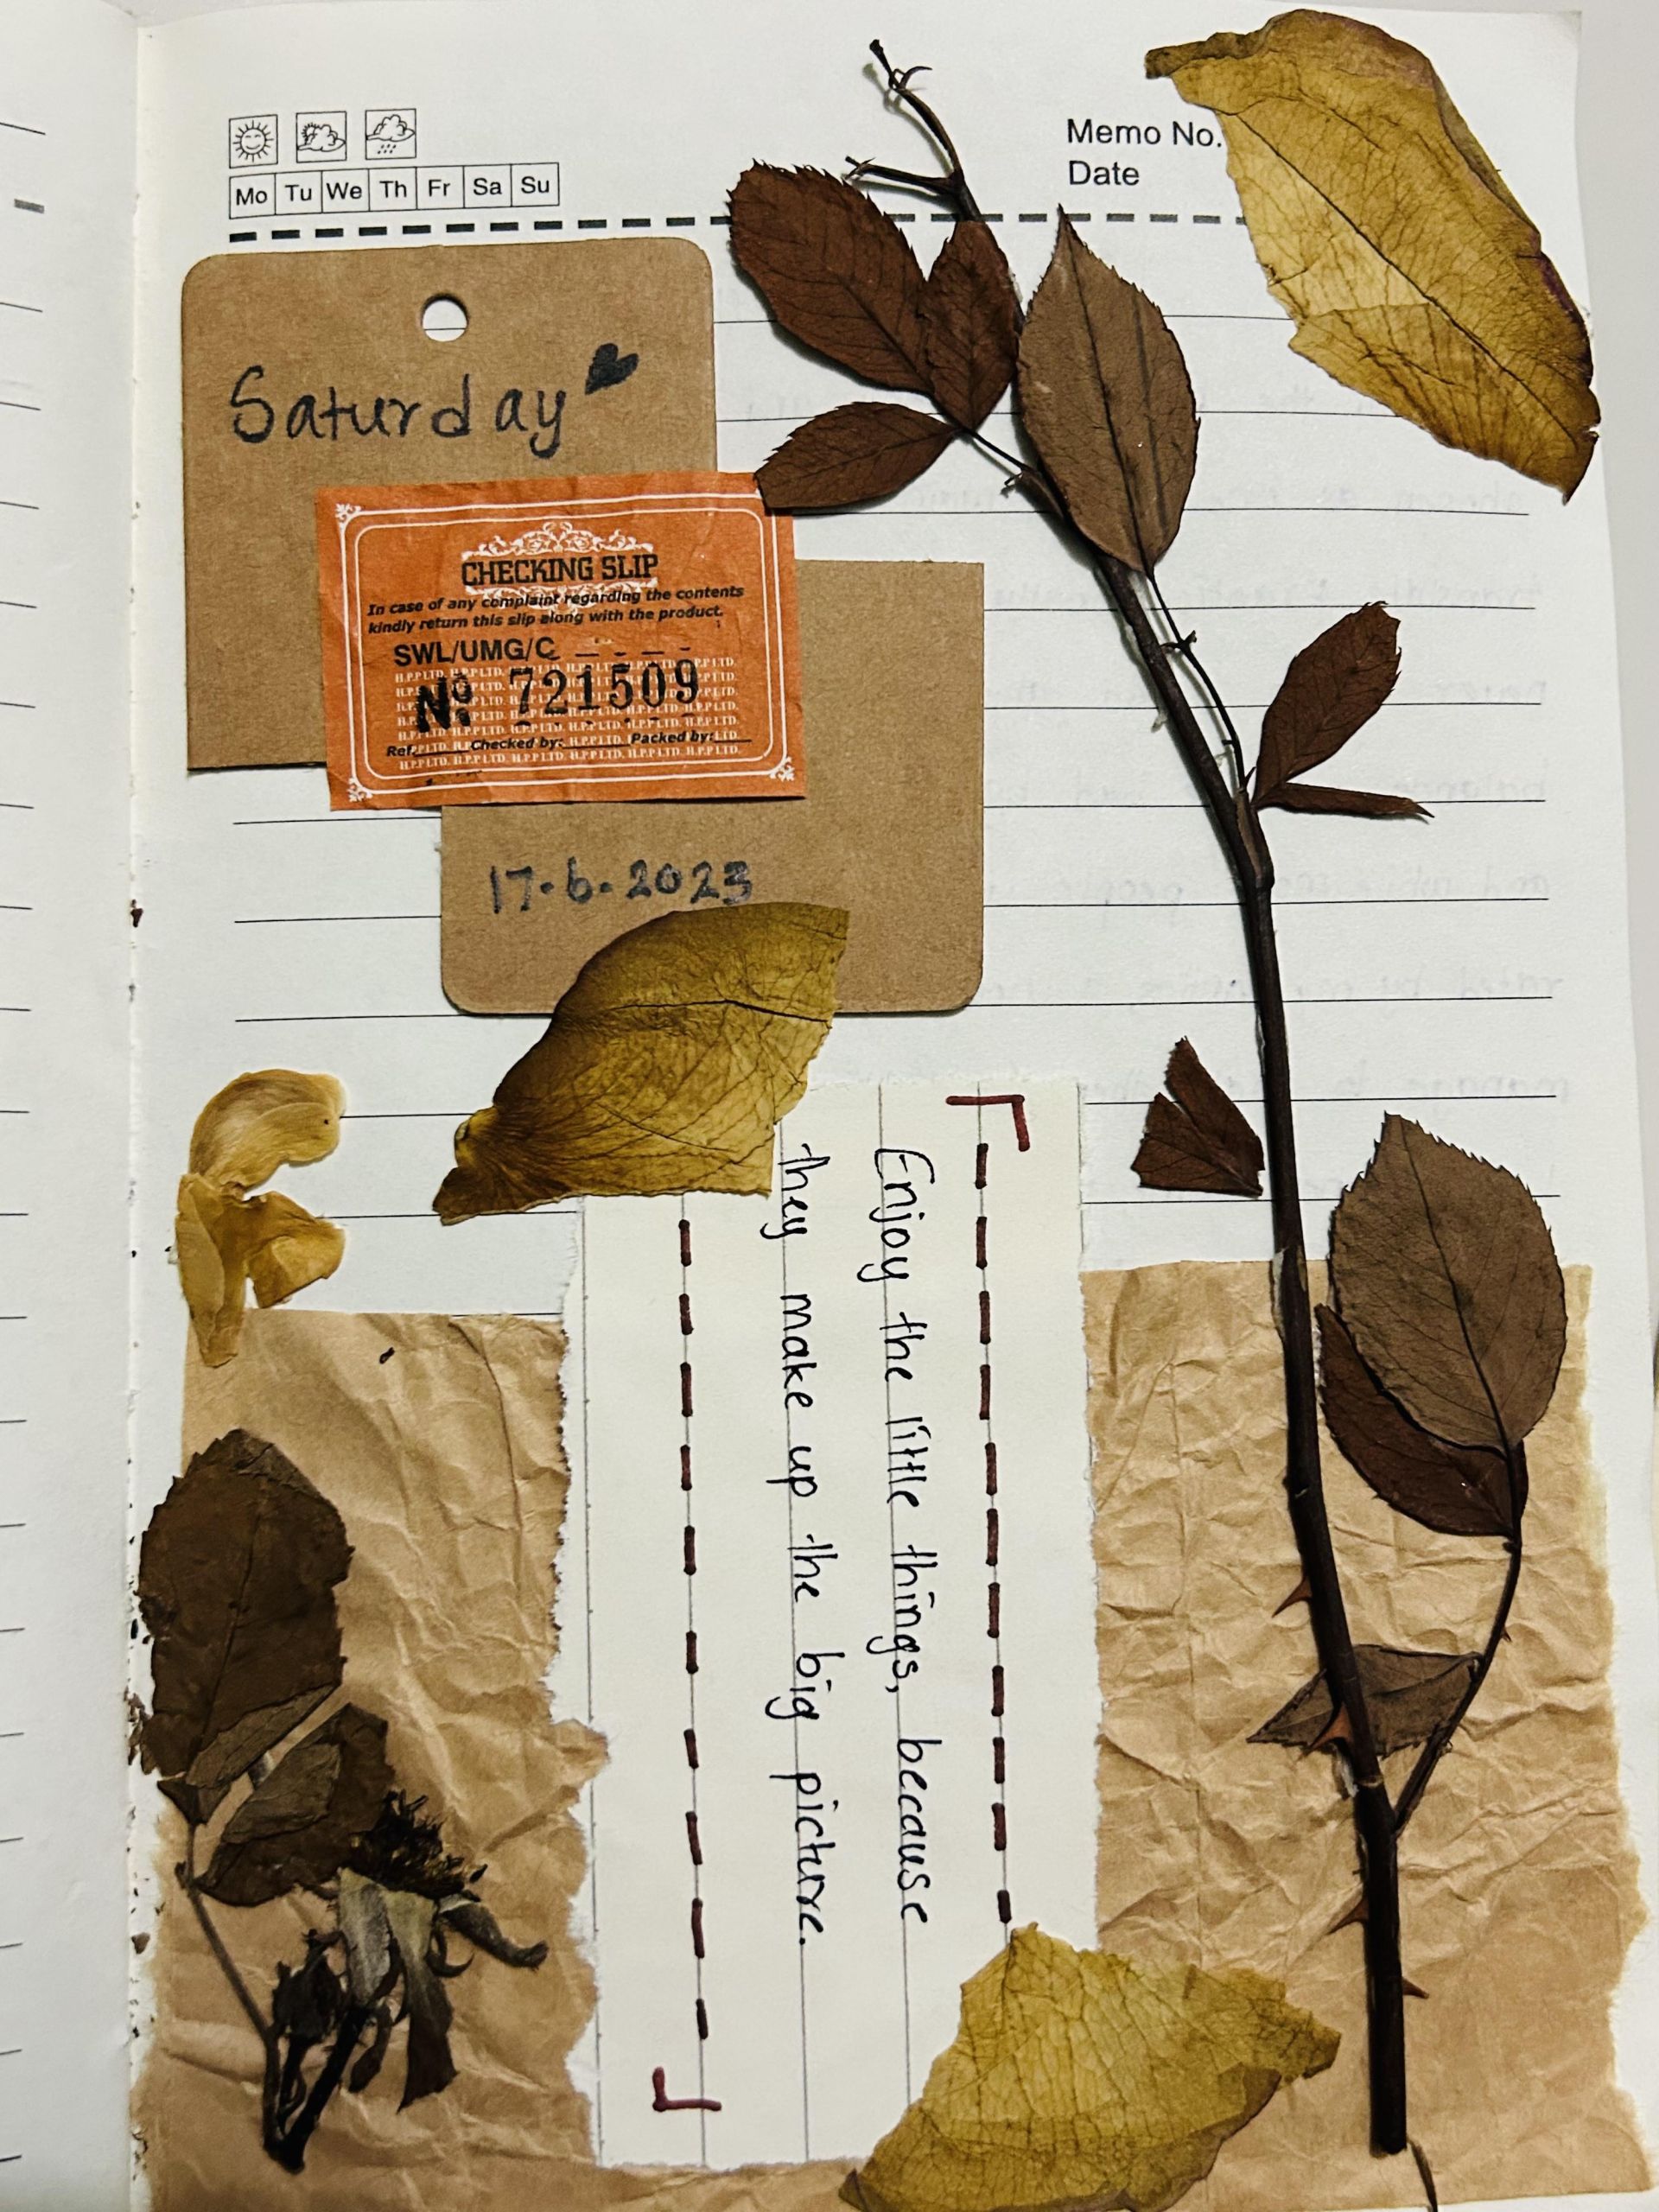 Mo Tu We Th Fr Sa Su
Memo No.
Date
Saturday
CHECKING SLIP
In case of any complaint regarding the contents
kindly return this slip along with the product.
SWL/UMG/C
H.P.P.LTD. H.P.P.LTD. H.P.P.LTD. H.P.P.LTD. H.P.P.LTD. H.P.P.LTD.
No. 721509
Ref. Checked by: Packed by:
17.6.2023
Enjoy the little things, because
they make up the big picture.